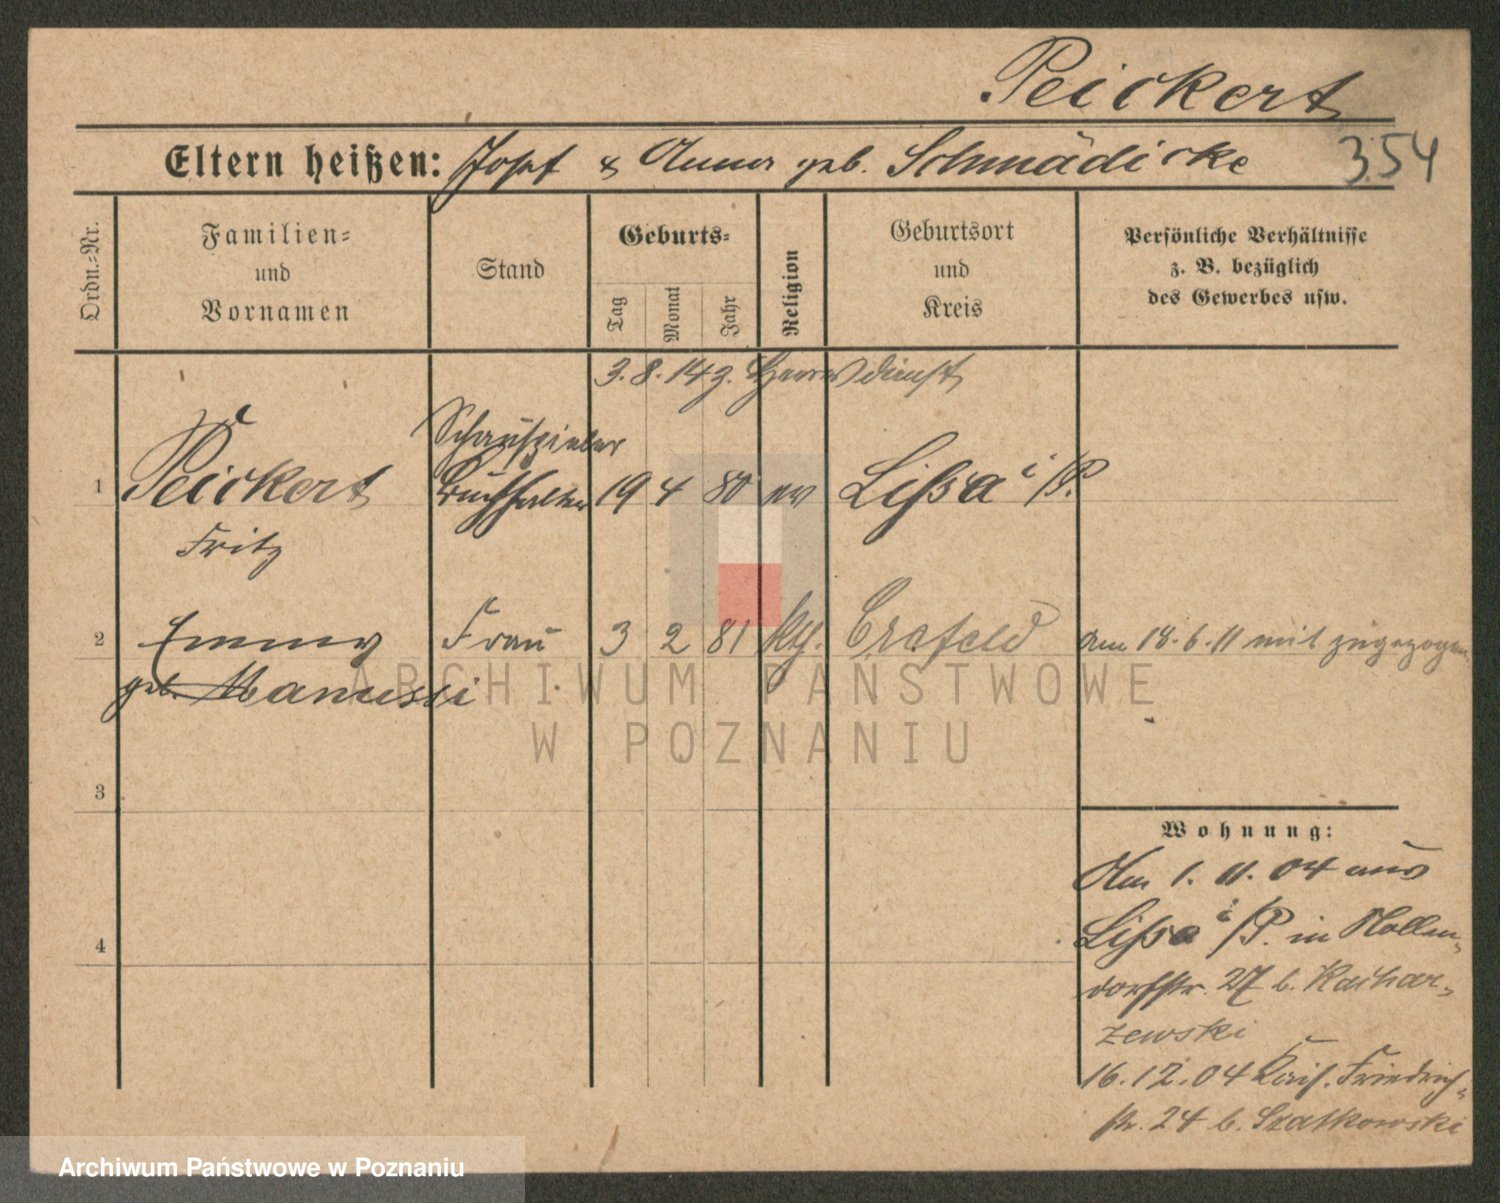 Peickert
354
Eltern heißen: Josef & Anna geb. Schmädicke
Ordn.-Nr.
Familien- und Vornamen
Stand
Geburts-
Tag
Monat
Jahr
Religion
Geburtsort und Kreis
Persönliche Verhältnisse z. B. bezüglich des Gewerbes usw.
3.8.14 z. Heeresdienst
Schauspieler
1 Peickert Buchhalter 19 4 80 ev Lissa i/P.
Fritz
2 Emma Frau 3 2 81 kth. Crefeld am 18.6.11 mit zugezogen
geb. Manussi
3
4
Wohnung:
Am 1.11.04 aus
Lissa i/P. in Nollen-
dorfstr. 27 b. Kachar-
zewski
16.12.04 Kais. Friedrich-
str. 24 b. Szatkowski
ARCHIWUM PAŃSTWOWE
W POZNANIU
Archiwum Państwowe w Poznaniu